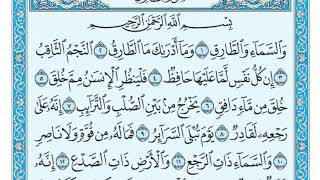 بِسْمِ اللَّهِ الرَّحْمَٰنِ الرَّحِيمِ
وَالسَّمَاءِ وَالطَّارِقِ ١ وَمَا أَدْرَاكَ مَا الطَّارِقُ ٢ النَّجْمُ الثَّاقِبُ
٣ إِن كُلُّ نَفْسٍ لَّمَّا عَلَيْهَا حَافِظٌ ٤ فَلْيَنظُرِ الْإِنسَانُ مِمَّ خُلِقَ ٥
خُلِقَ مِن مَّاءٍ دَافِقٍ ٦ يَخْرُجُ مِن بَيْنِ الصُّلْبِ وَالتَّرَائِبِ ٧ إِنَّهُ عَلَىٰ
رَجْعِهِ لَقَادِرٌ ٨ يَوْمَ تُبْلَى السَّرَائِرُ ٩ فَمَا لَهُ مِن قُوَّةٍ وَلَا نَاصِرٍ
١٠ وَالسَّمَاءِ ذَاتِ الرَّجْعِ ١١ وَالْأَرْضِ ذَاتِ الصَّدْعِ ١٢ إِنَّهُ